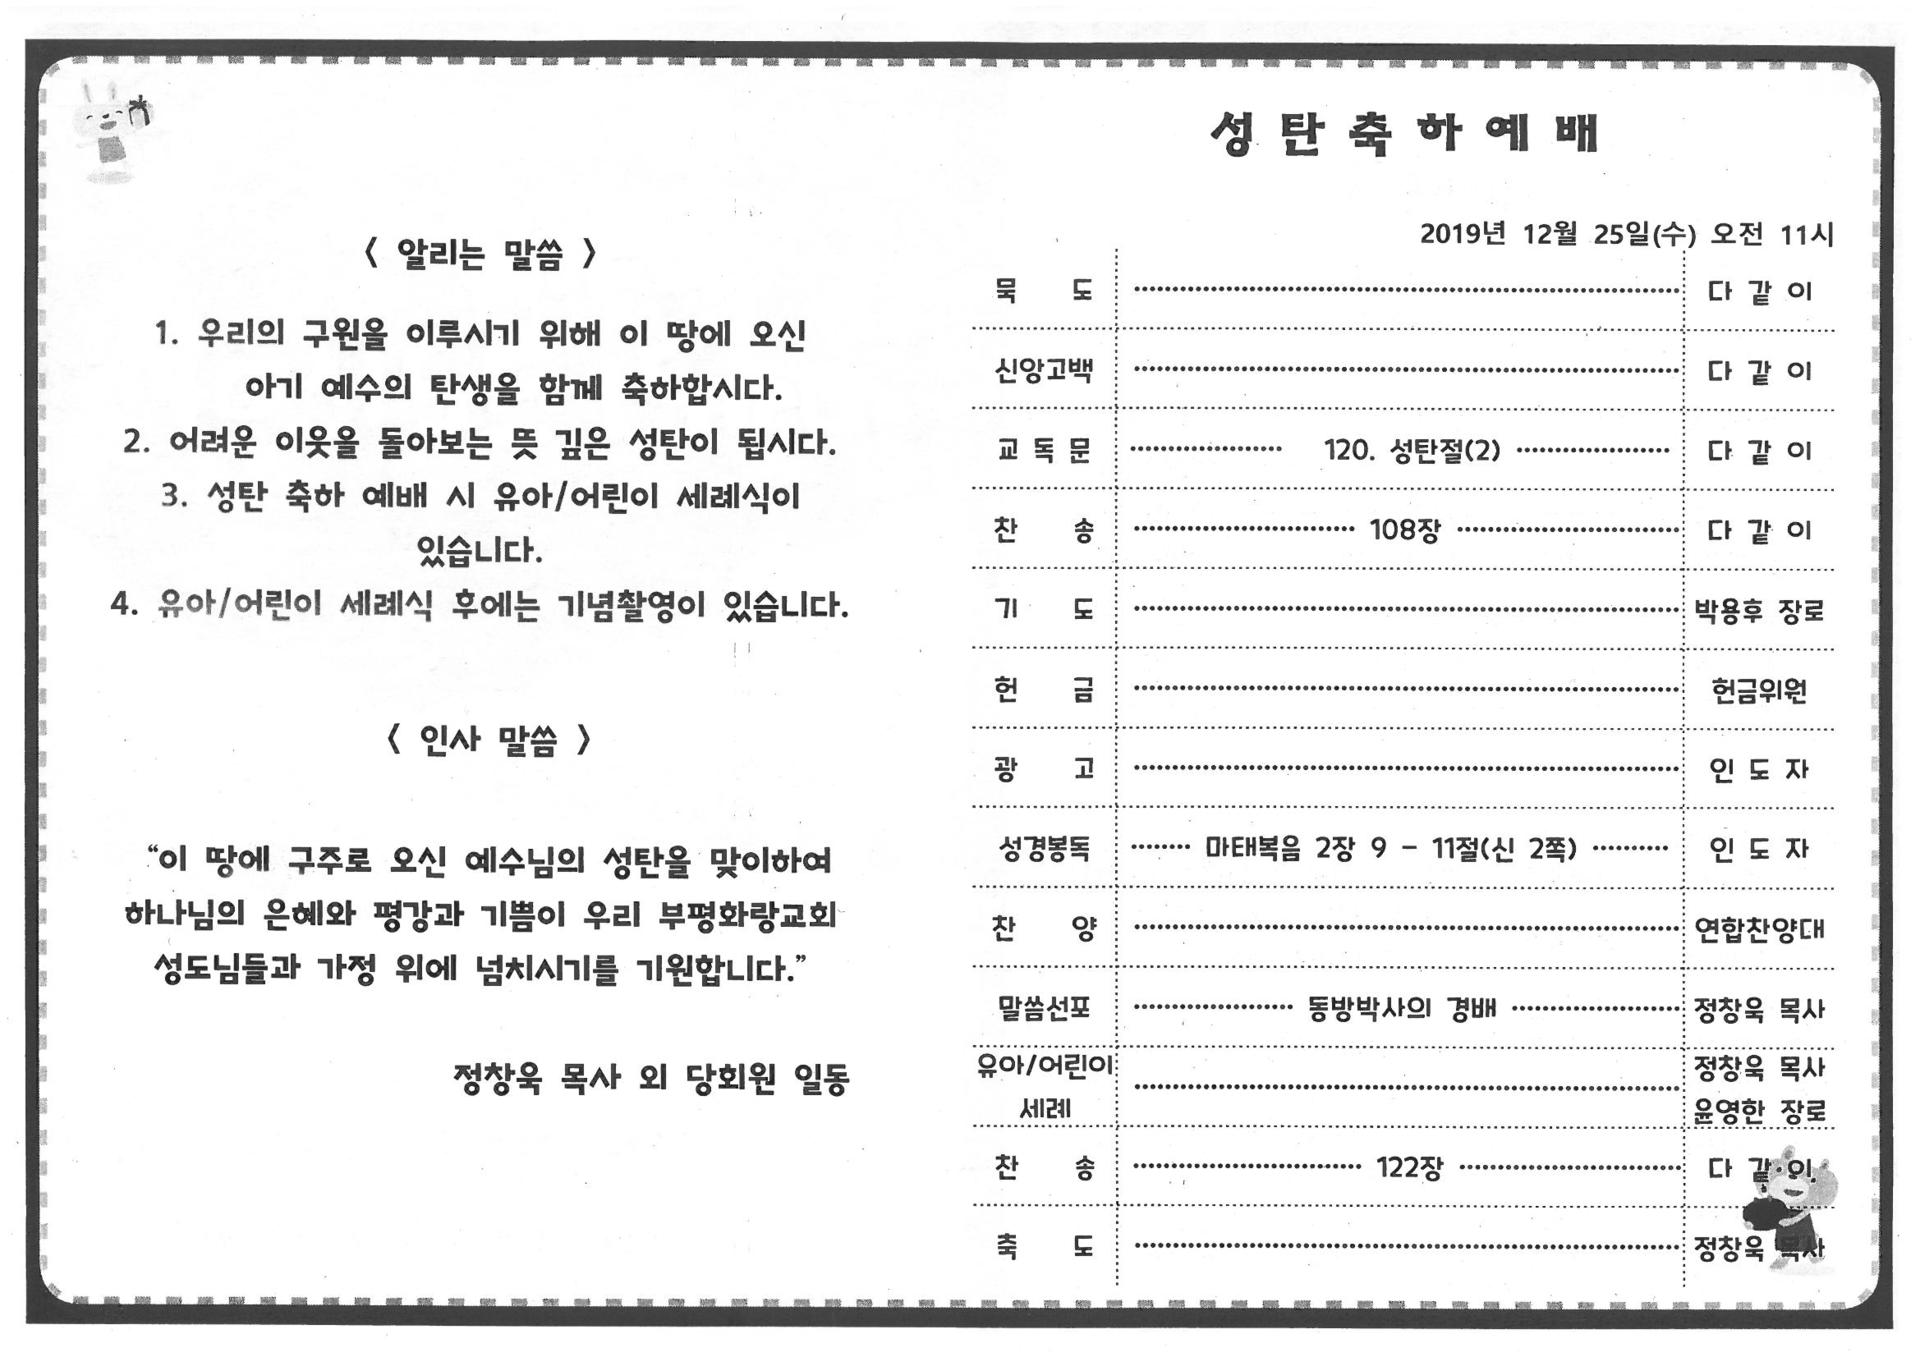 〈 알리는 말씀 〉
1. 우리의 구원을 이루시기 위해 이 땅에 오신
아기 예수의 탄생을 함께 축하합시다.
2. 어려운 이웃을 돌아보는 뜻 깊은 성탄이 됩시다.
3. 성탄 축하 예배 시 유아/어린이 세례식이
있습니다.
4. 유아/어린이 세례식 후에는 기념촬영이 있습니다.
〈 인사 말씀 〉
“이 땅에 구주로 오신 예수님의 성탄을 맞이하여
하나님의 은혜와 평강과 기쁨이 우리 부평화랑교회
성도님들과 가정 위에 넘치시기를 기원합니다.”
정창욱 목사 외 당회원 일동
성 탄 축 하 예 배
2019년 12월 25일(수) 오전 11시
묵 도 다 같 이
신앙고백 다 같 이
교 독 문 120. 성탄절(2) 다 같 이
찬 송 108장 다 같 이
기 도 박용후 장로
헌 금 헌금위원
광 고 인 도 자
성경봉독 마태복음 2장 9 - 11절(신 2쪽) 인 도 자
찬 양 연합찬양대
말씀선포 동방박사의 경배 정창욱 목사
유아/어린이 정창욱 목사
세례 윤영한 장로
찬 송 122장 다 같 이
축 도 정창욱 목사